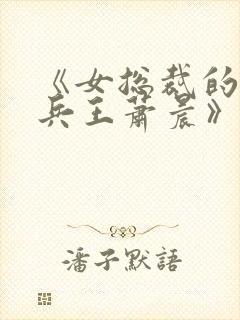 《女总裁的
兵王萧晨》
潘子默語